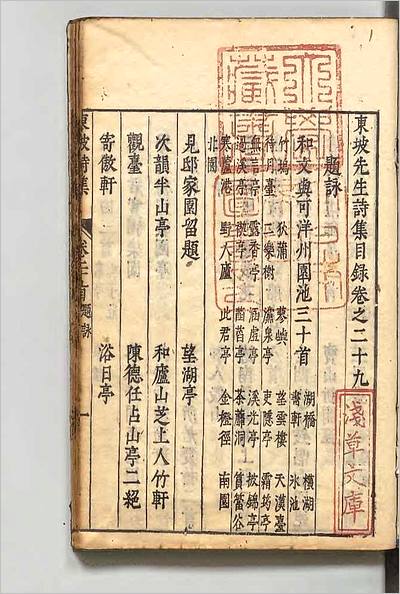 東坡先生詩集目録卷之二十九
題詠
和文與可洋州園池三十首
湖橋 橫湖
書軒 氷池
竹塢 荻蒲 蓼嶼 望雲樓 天漢臺
待月臺 二樂榭 灙泉亭 吏隱亭 霜筠亭
無言亭 露香亭 涵虛亭 溪光亭 披錦亭
過溪亭 禊亭 菡萏亭 荼蘼洞 篔簹谷
寒蘆港 野人廬 此君亭 金橙徑 南園
北園
見邱家園留題 望湖亭
次韻半山亭 和廬山芝上人竹軒
觀臺 陳德任占山亭二絕
寄傲軒 浴日亭
東坡詩集 題詠 一
淺草文庫